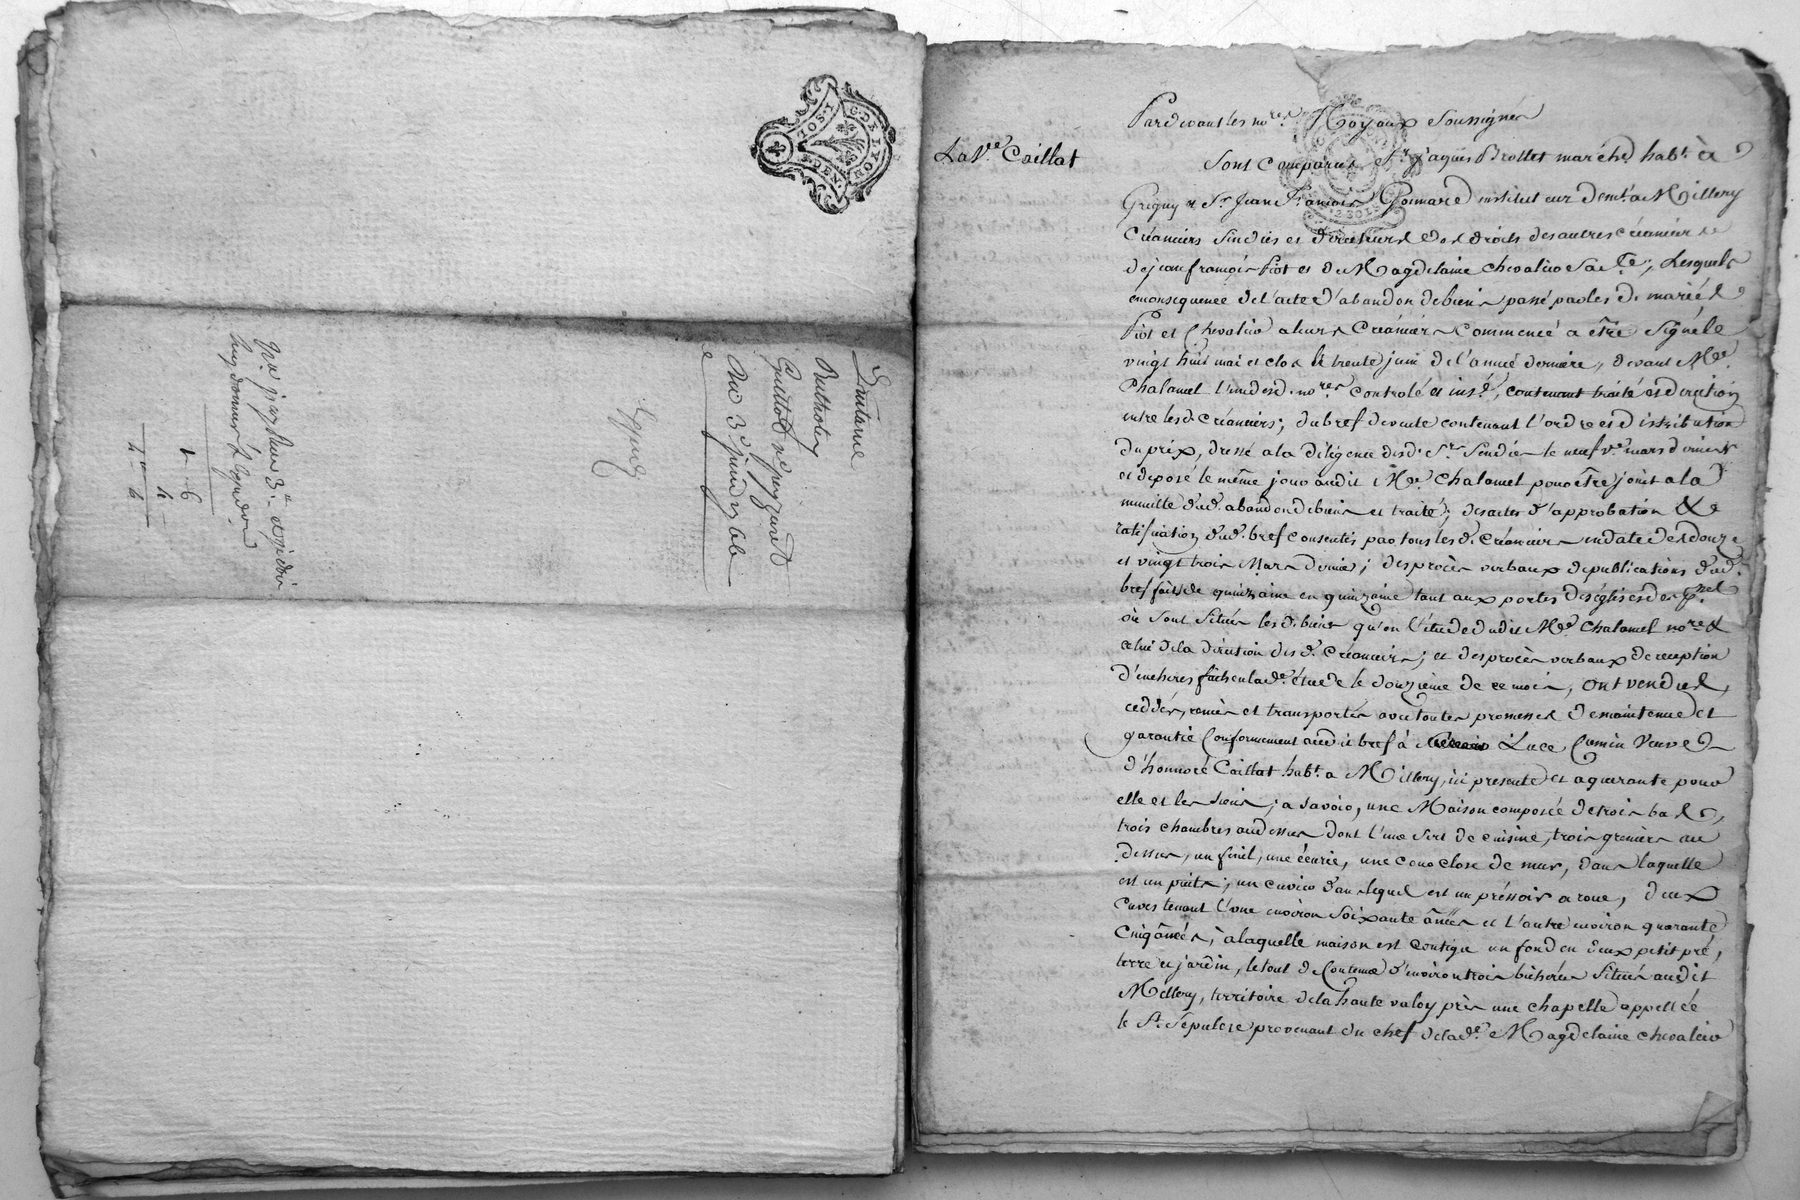 G. DE LYON
1. SOL
8 DEN.
Quittance
Du 3e juin 1766
La Ve. Caillat
Pardevant les nores. Royaux soussignés
sont comparus Sr. Jaques Brottet marchd. habt. à
Grigny et Sr. Jean François Goimard instituteur demt. a Millery
Créanciers sindics et directeurs des droits des autres créanciers
de jean françois Piot et de Magdelaine Chevalier sa fe.; Lesquels
en consequence de l'acte d'abandon de biens passé par les d. mariés
Piot et Chevalier a leurs Créanciers commencé a être signé le
vingt huit mai et clos le trente juin de l'année derniere, devant Me.
Chalamel l'un desd. nores. controlé et insé., contenant traité et direction
entre lesd. Créanciers; du bref de vente contenant l'ordre et distribution
du prix, dressé a la diligence desd. Srs. Sindics le neuf mars dernier
et deposé le même jour audit Me. Chalamel pour être joint a la
minutte dud. abandon de biens et traité; des actes d'approbation &
ratification dud. bref consentis par tous lesd. Créanciers en date des douze
et vingt trois Mars dernier; des procès verbaux de publications dud.
bref faits de quinzaine en quinzaine tant aux portes des églises des
où sont situés lesd. biens qu'en l'étude dudit Me. Chalamel nore. &
celui de la direction desd. Créanciers; et des procès verbaux de reception
d'encheres faits en lade. étude le douzieme de ce mois, ont vendu,
ceddés, remis et transportés avec toutes promesses de maintenue et
garantie Conformement audit bref à Luce Cumin Veuve
d'honnoré Caillat habt. a Millery, ici presente et aquerante pour
elle et les siens; a savoir, une Maison composée de trois bas,
trois chambres au dessus dont l'une sert de cuisine, trois greniers au
dessus, un finil, une écurie, une cour close de murs, dans laquelle
est un puits; un cuvier dans lequel est un préssoir a roue, deux
Cuves tenant l'une environ soixante ânées et l'autre environ quarante
cinq ânées; à laquelle maison est contigu un fond en deux petit pré,
terre et jardin, le tout de Contenue d'environ trois bicherées situés audit
Millery, territoire de la haute valoy près une chapelle appellée
le St. Sépulcre provenant du chef de lade. Magdelaine chevalier